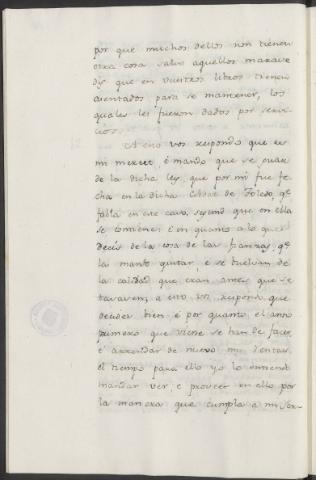 por que muchos dellos non tienen
otra cosa salvo aquellos marave
dis que en vuestros libros tienen
asentados para se mantener, los
quales les fueron dados por servi-
cios.
A esto vos respondo que es
mi merced, é mando que se guar
de la dicha ley, que por mi fue fe
cha en la dicha Cibdat de Toledo, qe.
fabla en este caso, segund que en ella
se contiene: é en quanto a lo que
decis de la cosa de las franzas, qe.
las mande quitar, e se tuelvan de
la calidad que eran antes que se
, a esto vos respondo que
decides bien é por quanto el anno
primero que viene se han de facer
é arrendar de nuevo mis rentas
el tiempo para ello yo lo entiendo
mandar ver, e proveer en ello por
la manera que cumpla a mi ser-